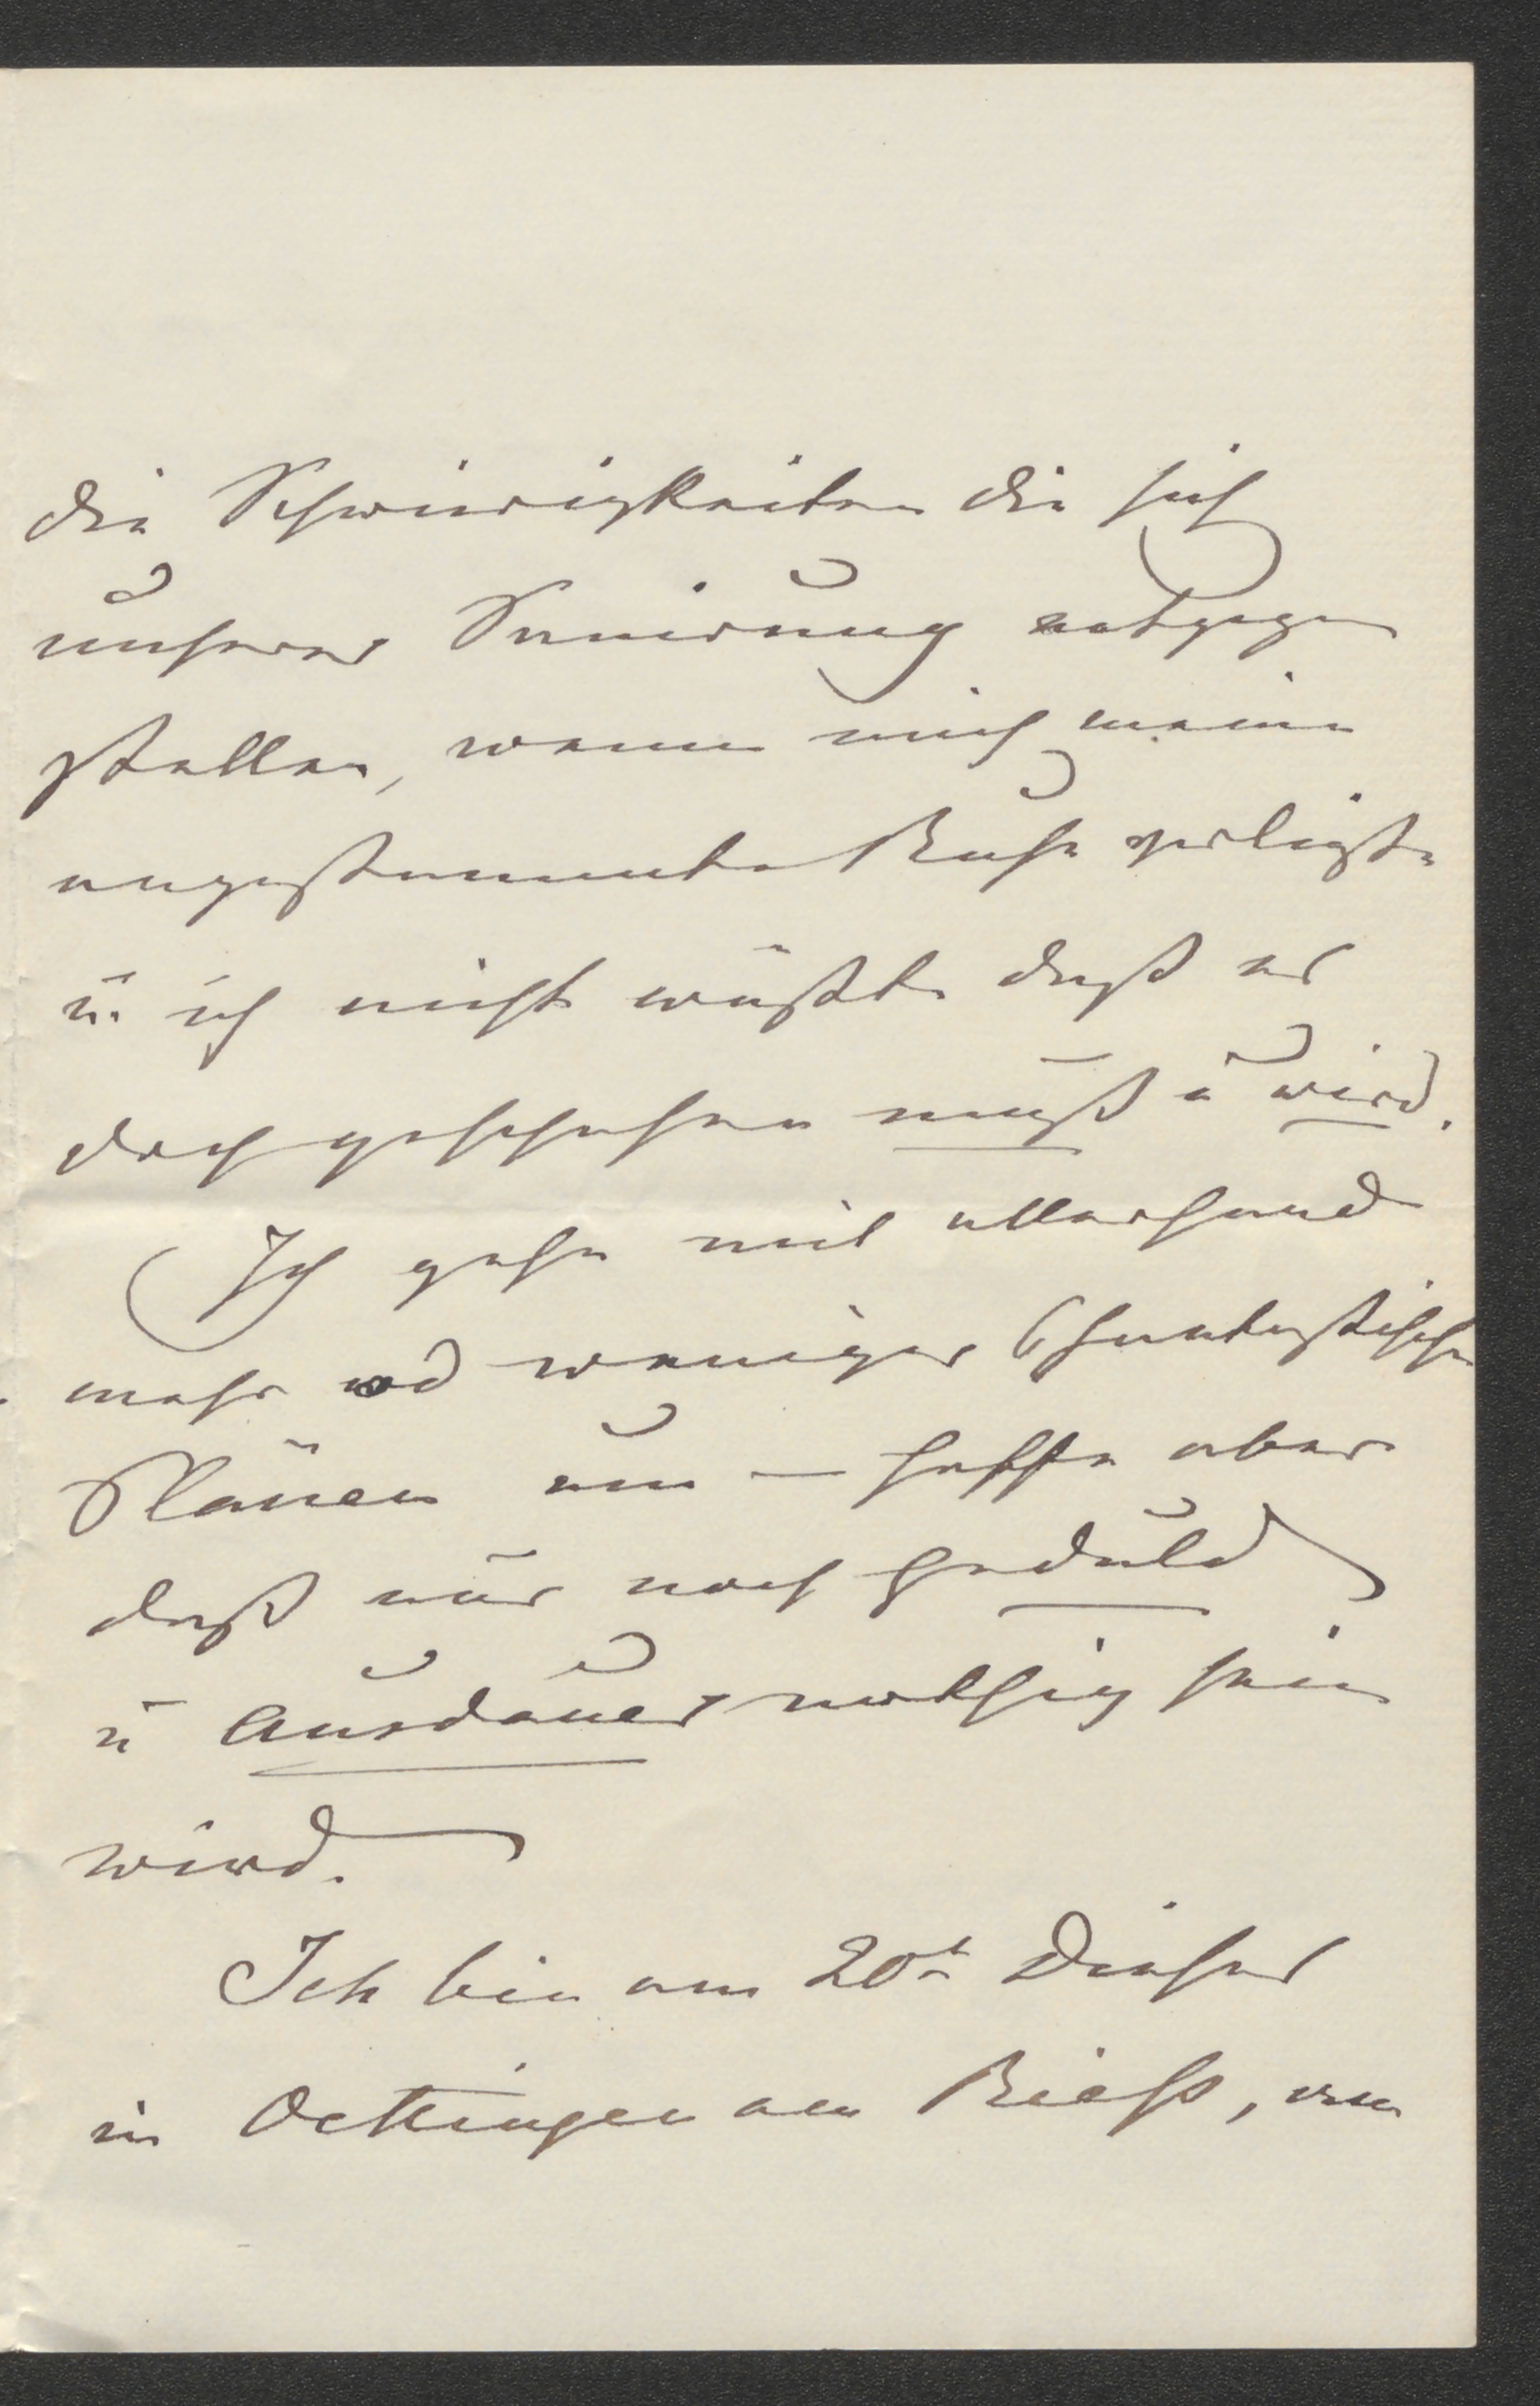 die Schwierigkeiten die sich
unserer Sanirung entgegen
stellen, wenn mich meine
angestammte Ruhe verließe
u. ich nicht wüßte daß es
doch geschehen muß u wird.
Ich gehe mit allerhand
mehr od weniger phantastischen
Plänen um – hoffe aber
daß nur noch Geduld
u Ausdauer nothig sein
wird.
Ich bin am 20t dieses
in Oettingen am Rieß, von